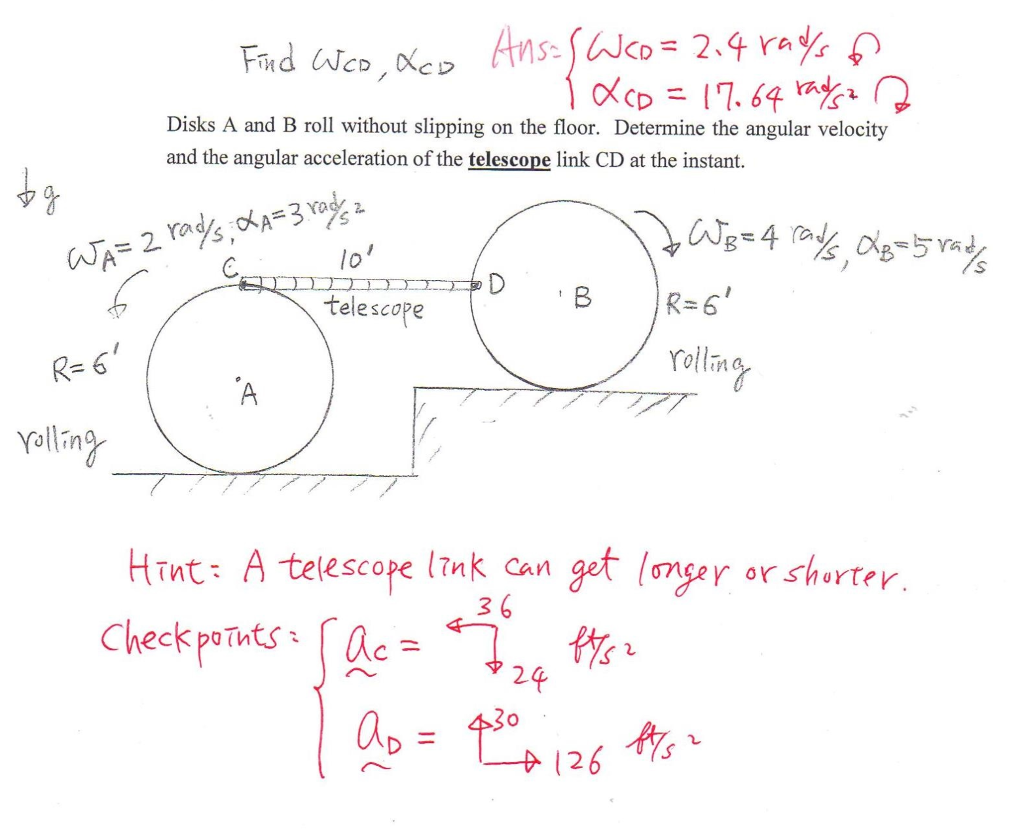 Find ωCD, αCD Ans = { ωCD = 2.4 rad/s ↺
αCD = 17.64 rad/s² ↻
Disks A and B roll without slipping on the floor. Determine the angular velocity
and the angular acceleration of the telescope link CD at the instant.
↓g
ωA = 2 rad/s, αA = 3 rad/s²
ωB = 4 rad/s, αB = 5 rad/s
C 10' D
telescope
B R = 6'
rolling
R = 6'
A
rolling
Hint: A telescope link can get longer or shorter.
Checkpoints: { aC = ← 36 ↓ 24 ft/s²
aD = ↑ 30 → 126 ft/s²